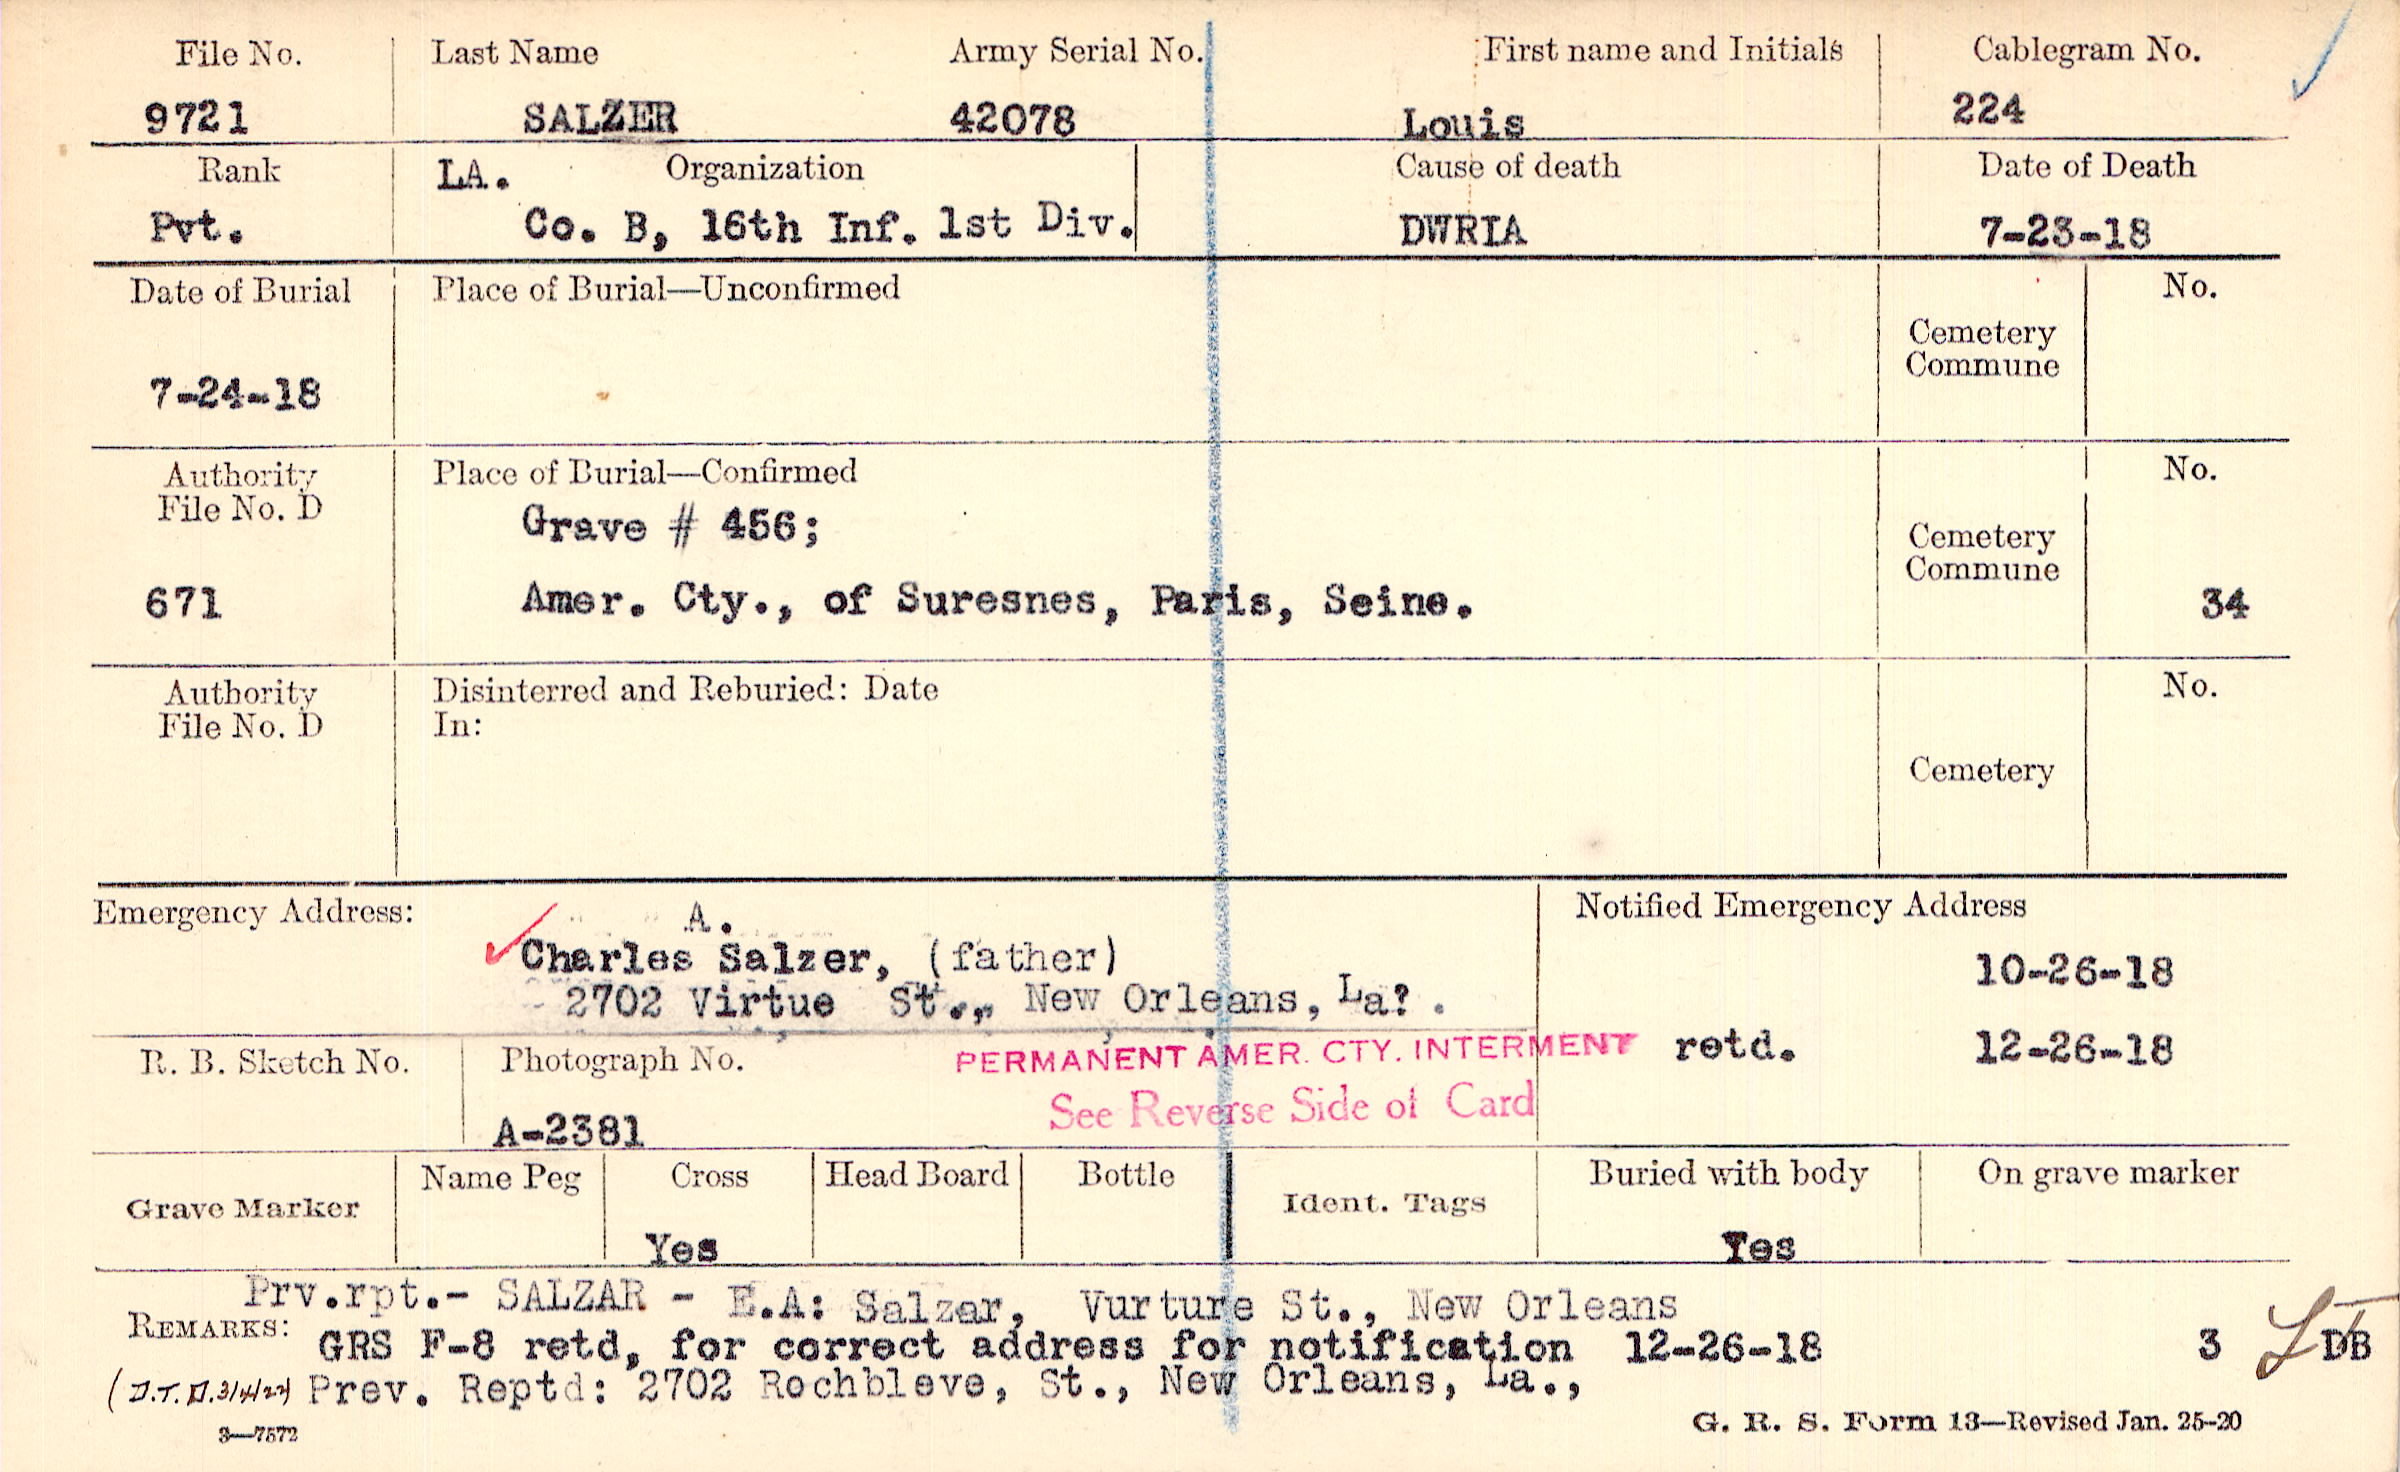 File No. Last Name Army Serial No. First name and Initials Cablegram No.
9721 SALZER 42078 Louis 224
Rank LA. Organization Cause of death Date of Death
Pvt. Co. B, 16th Inf. 1st Div. DWRIA 7-23-18
Date of Burial Place of Burial—Unconfirmed No.
Cemetery
Commune
7-24-18
Authority Place of Burial—Confirmed No.
File No. D
Grave # 456;
Cemetery
Commune
671 Amer. Cty., of Suresnes, Paris, Seine. 34
Authority Disinterred and Reburied: Date No.
File No. D In:
Cemetery
Emergency Address: A. Notified Emergency Address
Charles Salzer, (father) 10-26-18
2702 Virtue St., New Orleans, La? .
R. B. Sketch No. Photograph No. PERMANENT AMER. CTY. INTERMENT retd. 12-26-18
See Reverse Side of Card
A-2381
Grave Marker Name Peg Cross Head Board Bottle Ident. Tags Buried with body On grave marker
Yes Yes
Prv.rpt.- SALZAR - E.A: Salzar, Vurture St., New Orleans
REMARKS: GRS F-8 retd, for correct address for notification 12-26-18 3 DB
Prev. Reptd: 2702 Rochbleve, St., New Orleans, La.,
3—7572 G. R. S. Form 13—Revised Jan. 25-20